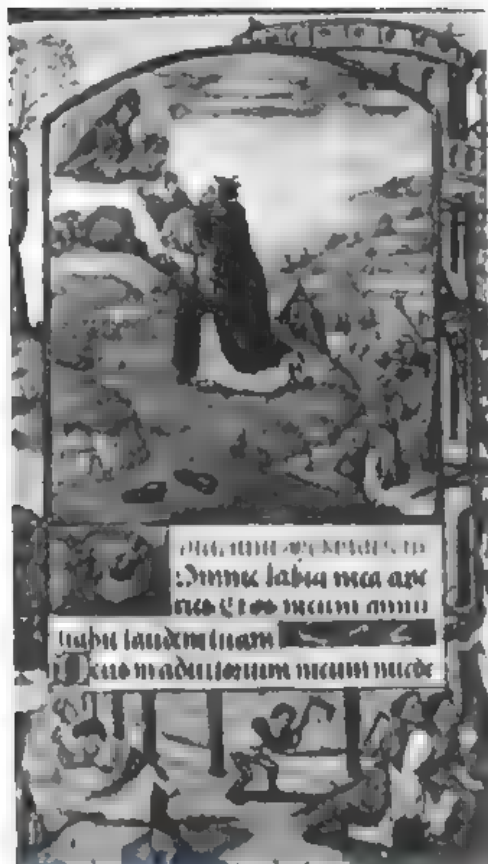 Domine labia mea ape
ries Et os meum annu
tiabit laudem tuam
Deus in adiutorium meum